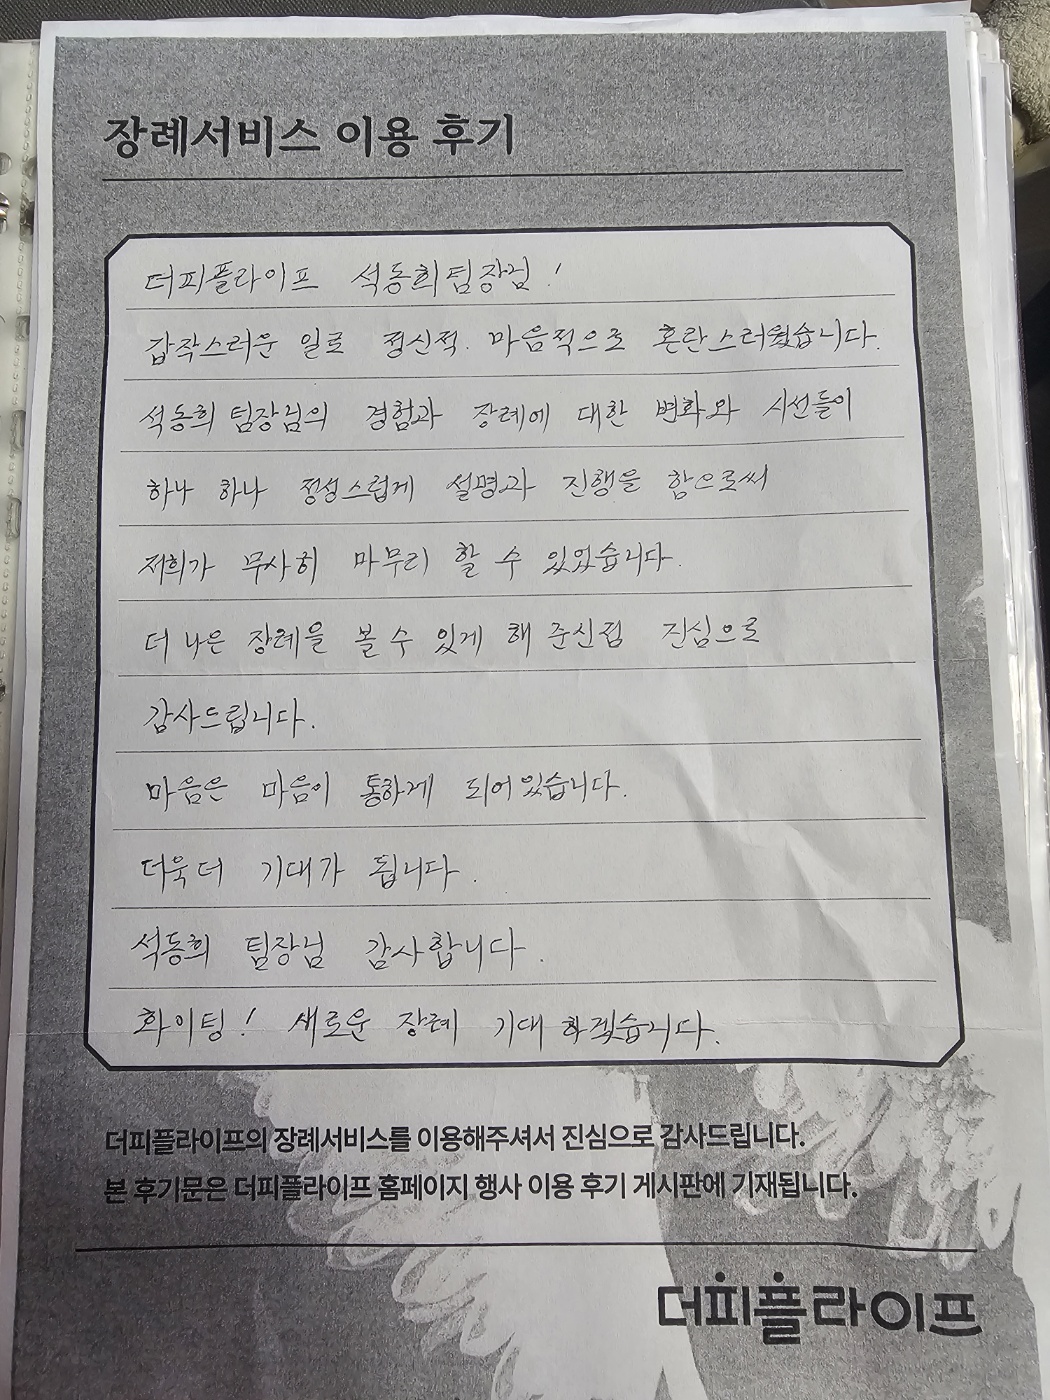 장례서비스 이용 후기
더피플라이프 석동희팀장님!
갑작스러운 일로 정신적. 마음적으로 혼란스러웠습니다.
석동희팀장님의 경험과 장례에 대한 변화와 시선들이
하나 하나 정성스럽게 설명과 진행을 함으로써
저희가 무사히 마무리 할 수 있었습니다.
더 나은 장례을 볼 수 있게 해 준신점 진심으로
감사드립니다.
마음은 마음이 통하게 되어있습니다.
더욱더 기대가 됩니다.
석동희 팀장님 감사합니다.
화이팅! 새로운 장례 기대 하겠습니다.
더피플라이프의 장례서비스를 이용해주셔서 진심으로 감사드립니다.
본 후기문은 더피플라이프 홈페이지 행사 이용 후기 게시판에 기재됩니다.
더피플라이프